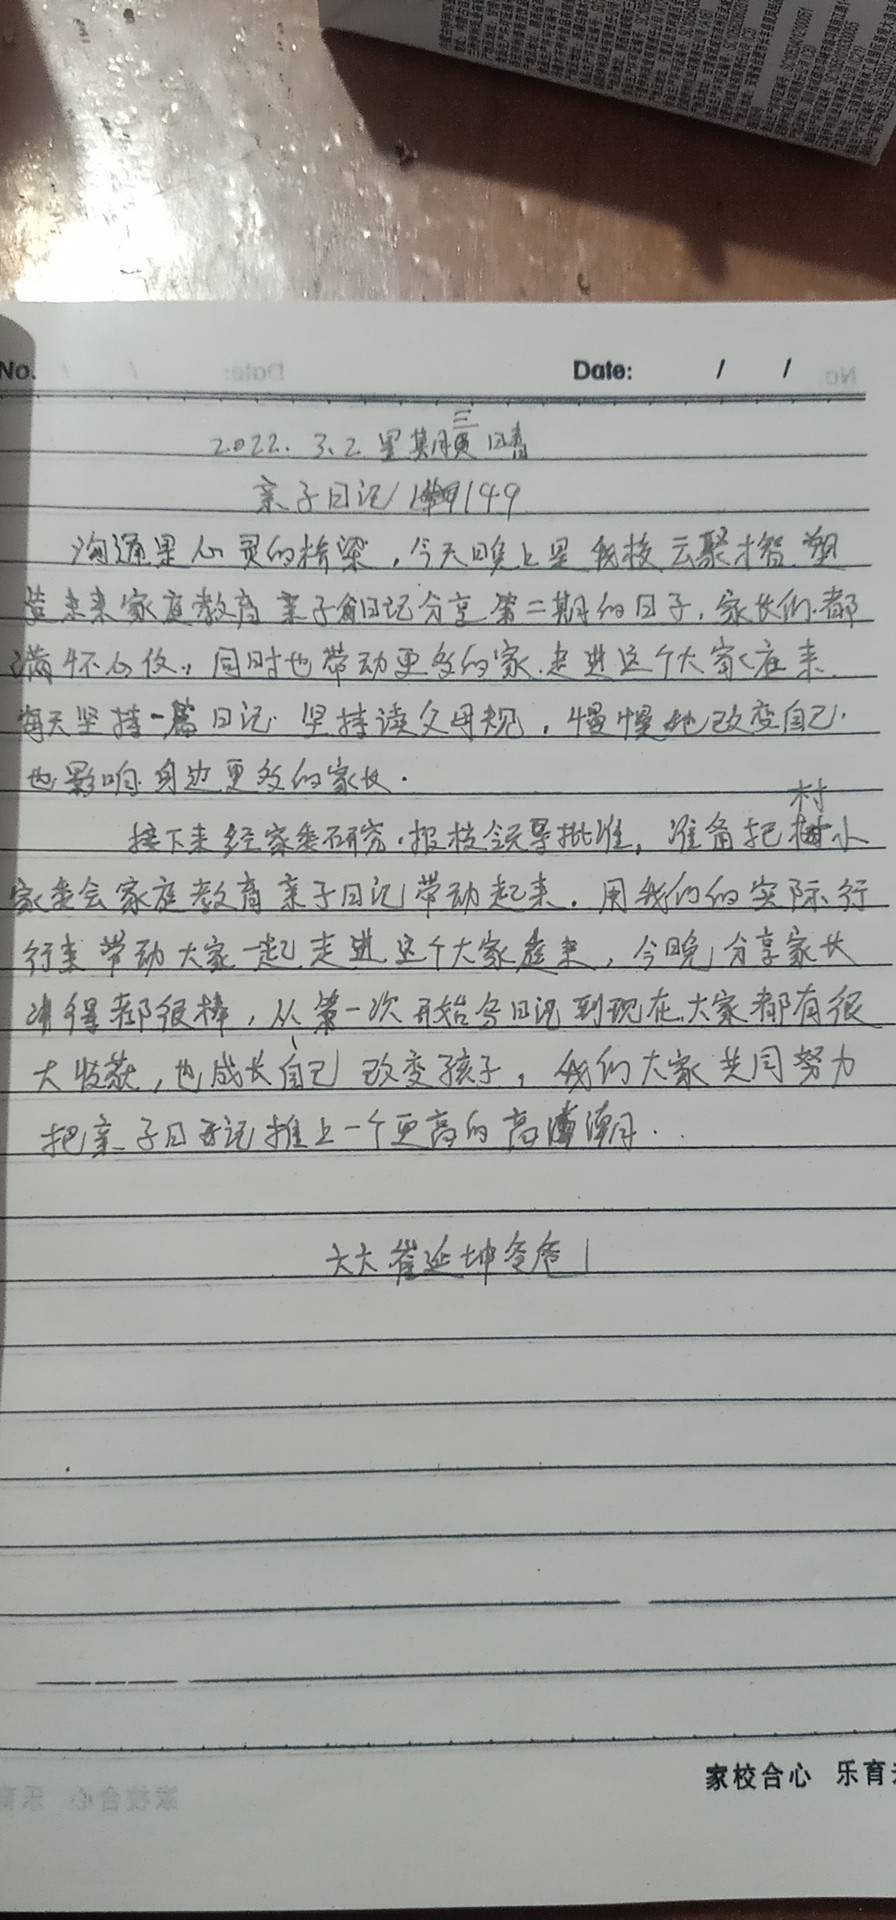 No. Date: / /
2022.3.2 星期三 晴
亲子日记 149
沟通是心灵的桥梁，今天晚上是我校云聚才智.塑
造未来家庭教育亲子日记分享第二期的日子，家长们都
满怀心, 同时也带动更多的家.走进这个大家庭来.
每天坚持一篇日记 坚持读父母规，慢慢地改变自己.
也影响身边更多的家长.
接下来经家委研究.报校领导批准，准备把村小
家委会家庭教育亲子日记带动起来.用我们的实际行
行来带动大家一起走进这个大家庭来，今晚分享家长
讲得都很棒，从第一次开始写日记到现在大家都有很
大收获，也成长自己 改变孩子，我们大家共同努力
把亲子日记推上一个更高的高潮.
六大崔延坤爸爸
家校合心 乐育